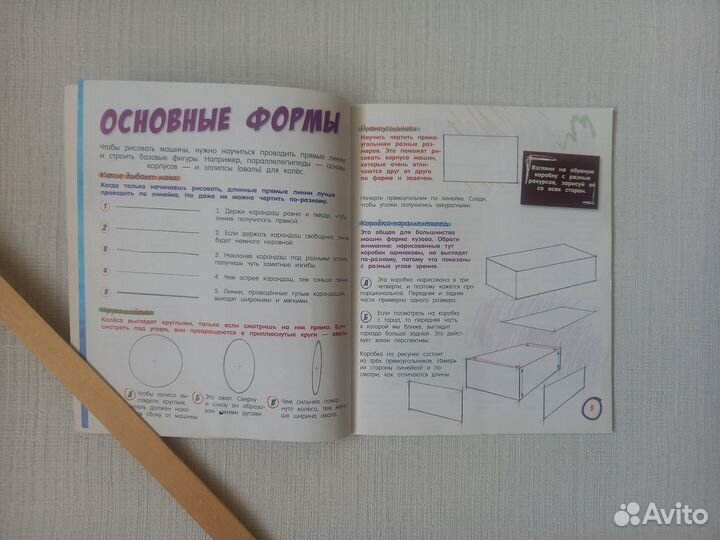 ОСНОВНЫЕ ФОРМЫ
Чтобы рисовать машины, нужно научиться проводить прямые линии
и строить базовые фигуры. Например, параллелепипеды — основы
корпусов — и эллипсы (овалы) для колёс.
Какие бывают линии
Когда только начинаешь рисовать, длинные прямые линии лучше
проводить по линейке. Но даже их можно чертить по-разному.
1
2
3
4
5
1. Держи карандаш ровно и твёрдо, чтобы
линия получилась прямой.
2. Если держать карандаш свободнее, линия
будет немного неровной.
3. Наклоняя карандаш под разными углами,
получишь чуть заметные изгибы.
4. Чем острее карандаш, тем тоньше линия.
5. Линии, проведённые тупым карандашом,
выходят широкими и мягкими.
Колёса выглядят круглыми, только если смотришь на них прямо. Если
смотреть под углом, они превращаются в приплюснутые круги — овалы.
А Чтобы колесо вы-
глядело круглым,
тель должен нахо-
сбоку от машины.
Б Это овал. Сверху
и снизу он образо-
ван узкими дугами.
В Чем сильнее повёр-
нуто колесо, тем мень-
ше ширина овала.
Прямоугольники
Научись чертить прямо-
угольники разных раз-
меров. Это поможет ри-
совать корпуса машин,
которые очень отли-
чаются друг от друга
по форме и задачам.
Начерти прямоугольник по линейке. Следи,
чтобы уголки получились аккуратными.
Взгляни на обувную
коробку с разных
ракурсов, зарисуй её
со всех сторон.
Коробка-параллелепипед
Это общая для большинства
машин форма кузова. Обрати
внимание: нарисованные тут
коробки одинаковы, но выглядят
по-разному, потому что показаны
с разных углов зрения.
А Эта коробка нарисована в три
четверти, и поэтому кажется про-
порциональной. Передняя и задняя
части примерно одного размера.
Б Если посмотреть на коробку
с торца, то передняя часть,
к которой мы ближе, выглядит
гораздо больше задней. Это дейст-
вует закон перспективы.
Коробка на рисунке состоит
из трёх прямоугольников. Измерь
их стороны линейкой и по-
смотри, как отличаются длины.
5
Avito